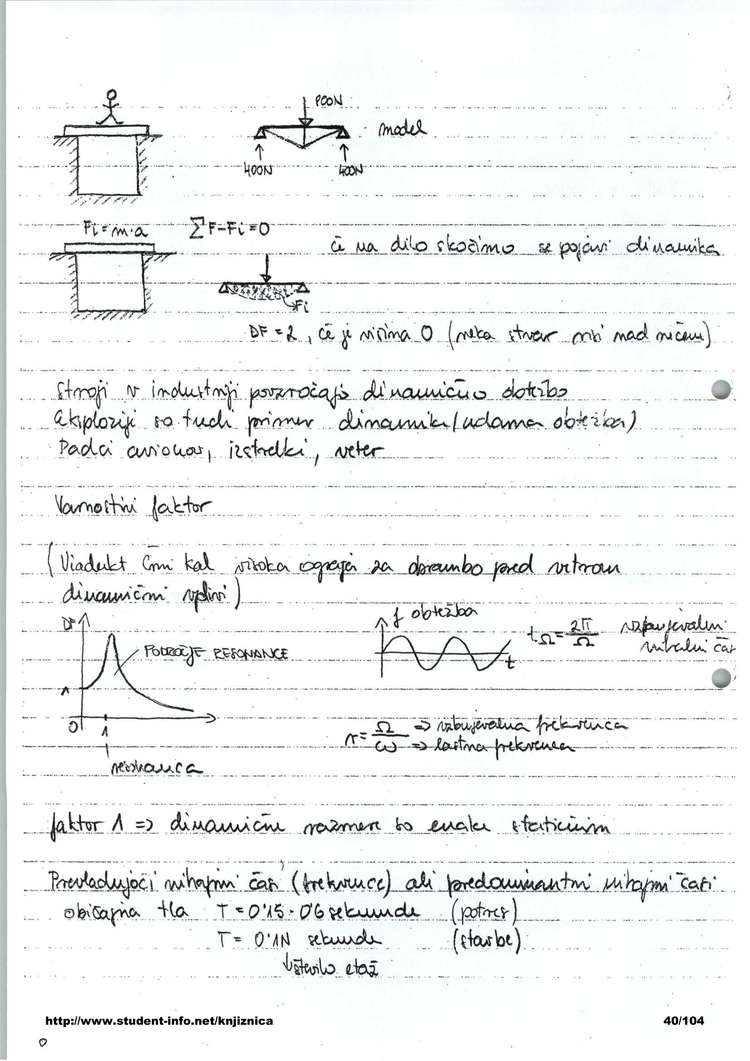 800N
model
400N 400N
Fi = m·a ΣF-Fi=0
če na dilo skočimo se pojavi dinamika
Fi
DF = 2, če je višina 0 (neka stvar visi nad nečem)
Stroji v industriji povzročajo dinamično obtežbo
Eksplozije so tudi primer dinamike (udarna obtežba)
Padci avionov, izstrelki, veter
Varnostni faktor
(Viadukt Črni kal visoka ograja za obrambo pred vetrom
dinamični vplivi)
DF
f obtežba
PODROČJE RESONANCE
t
tΩ = 2π/Ω vzbujevalni
nihalni čas
1
0 1
r = Ω/ω => vzbujevalna frekvenca
=> lastna frekvenca
resonanca
faktor 1 => dinamične razmere so enake statičnim
Prevladujoči nihajni čas (frekvence) ali predominantni nihajni časi
običajna tla T = 0'15 - 0'6 sekunde (potres)
T = 0'1N sekunde (stavbe)
↓ število etaž
http://www.student-info.net/knjiznica 40/104